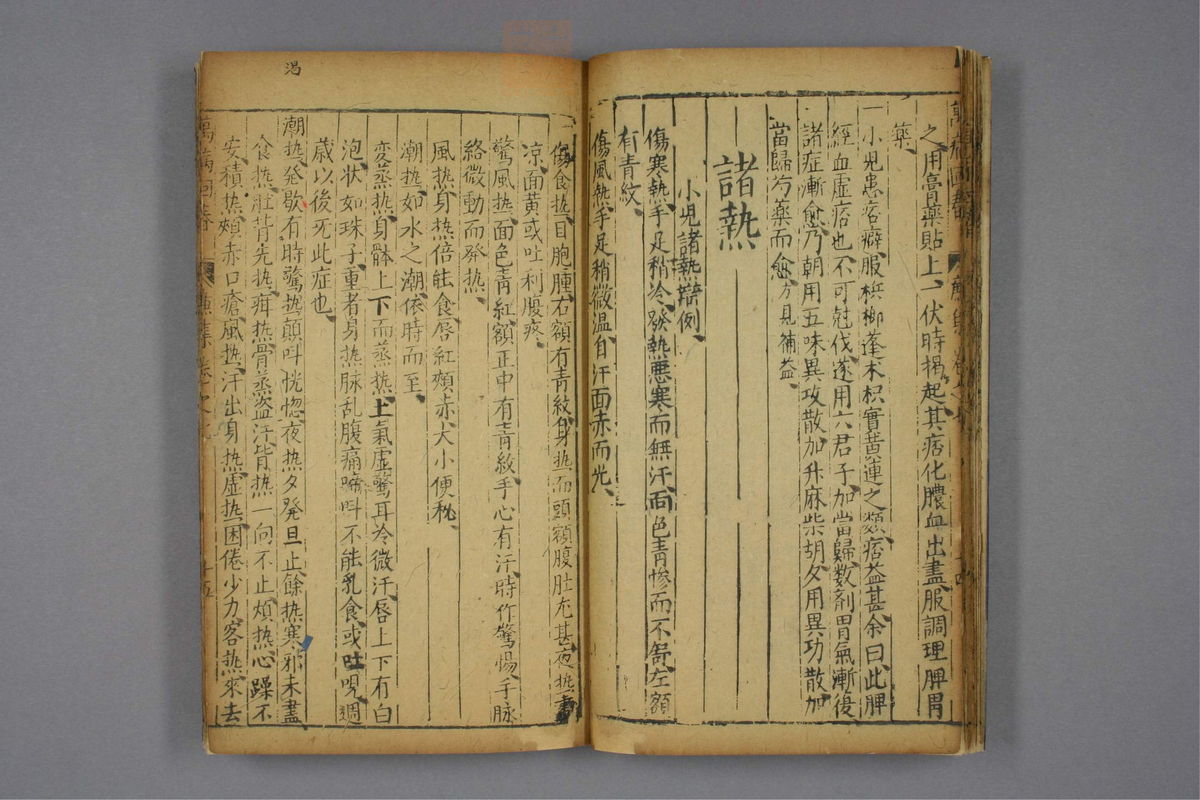 之用膏藥貼上一伏時揭起其痞化膿血出盡服調理脾胃
藥
一小児患痞癖服梹榔蓬术枳實黄連之類痞益甚余曰此脾
經血虛痞也不可尅伐遂用六君子加當歸数剤胃氣漸復
諸症漸愈乃朝用五味異攻散加升麻柴胡夕用異功散加
當歸芍藥而愈方見補益
諸熱
小児諸熱辯例
傷寒熱手足稍冷發熱悪寒而無汗面色青惨而不舒左額
有青紋
傷風熱手足稍微温自汗面赤而光
傷食热目胞腫右額有青紋身热而頭額腹肚尤甚夜热晝
凉面黄或吐利腹疼
驚風热面色青紅額正中有青紋手心有汗時作驚惕手脉
絡微動而發热
風热身热倍能食唇紅頰赤大小便秘
潮热如水之潮依時而至
变蒸热身體上下而蒸热上氣虛驚耳冷微汗唇上下有白
泡状如珠子重者身热脉乱腹痛啼呌不能乳食或吐哯週
歳以後旡此症也
潮热發歇有時驚热顛呌恍惚夜热夕發旦止餘热寒邪未盡
食热肚背先热疳热骨蒸盗汗皆热一向不止煩热心躁不
安積热頰赤口瘡風热汗出身热虚热困倦少力客热來去
萬病回春
渴